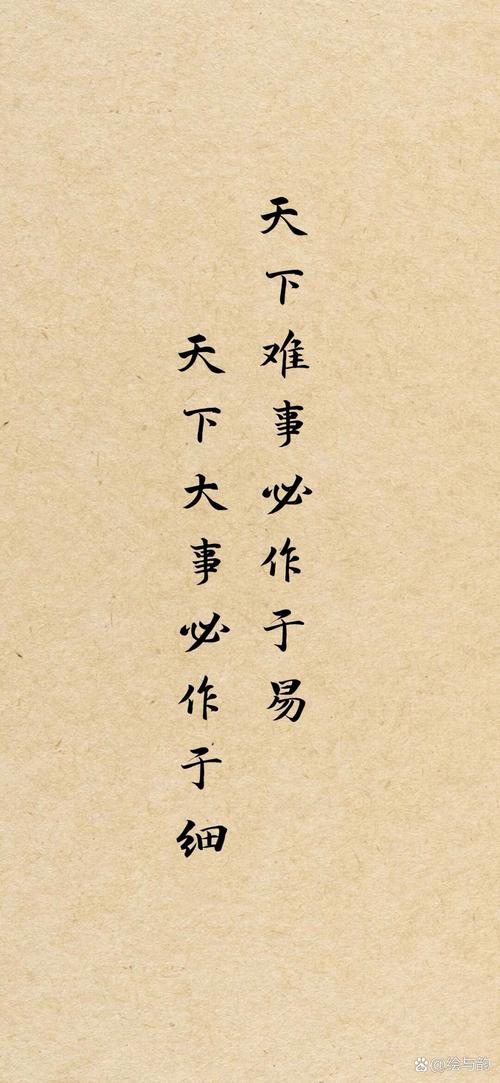 天下难事必作于易
天下大事必作于细
@绘与韵